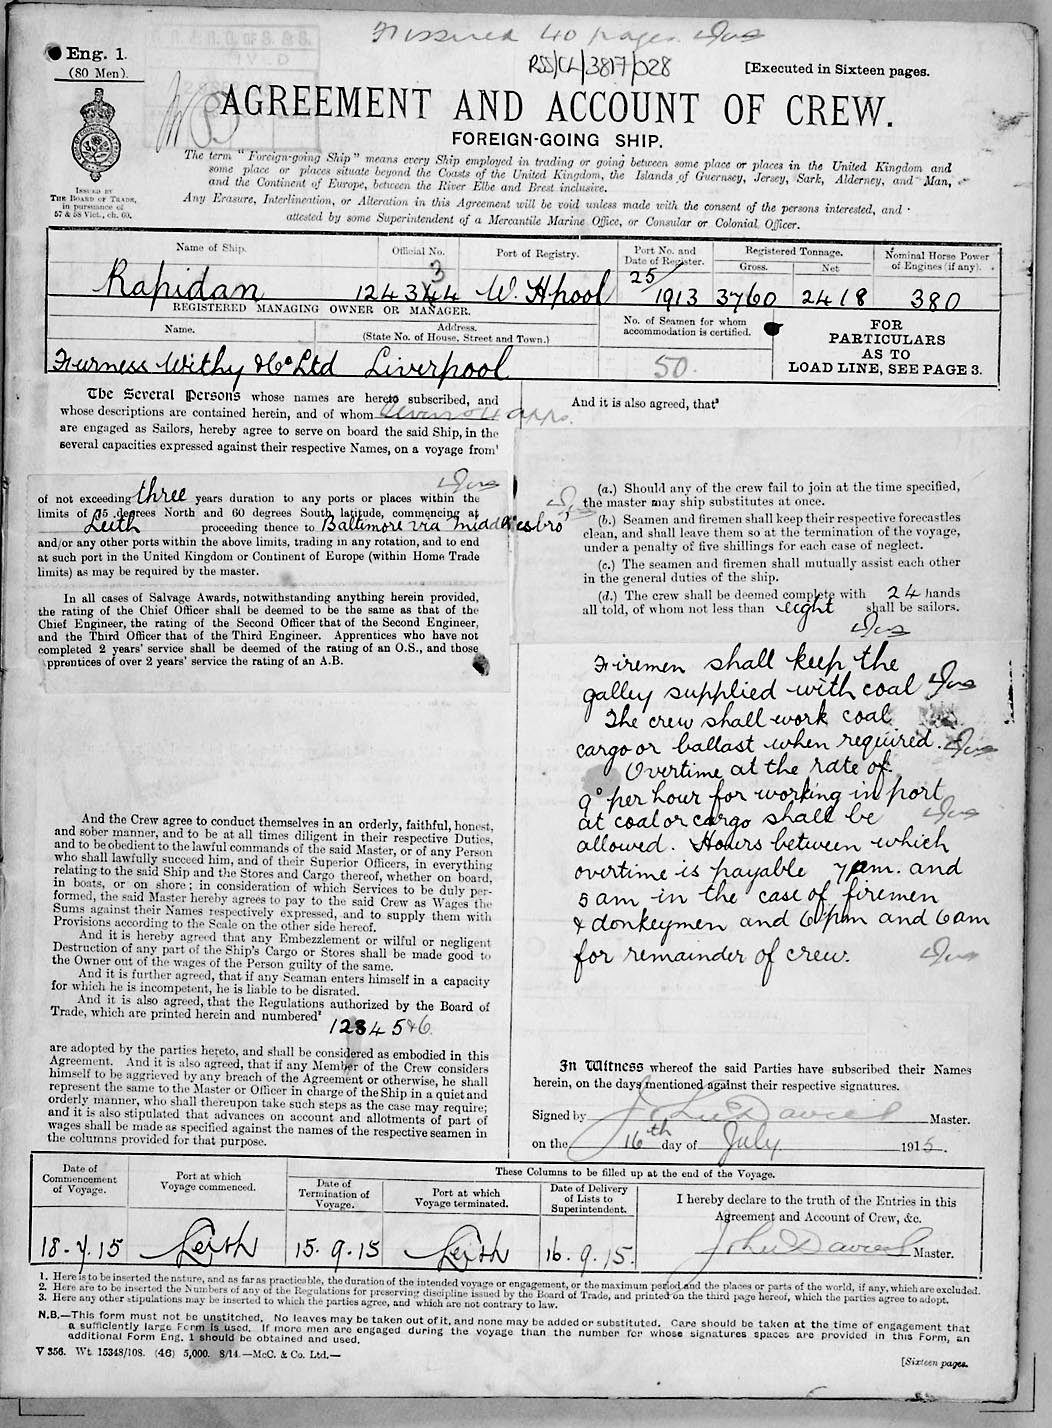 Eng. 1.
(80 Men).
40 pages.
RSS/CL/3817/028
[Executed in Sixteen pages.
AGREEMENT AND ACCOUNT OF CREW.
FOREIGN-GOING SHIP.
ISSUED BY
THE BOARD OF TRADE,
in pursuance of
57 & 58 Vict., ch. 60.
The term "Foreign-going Ship" means every Ship employed in trading or going between some place or places in the United Kingdom and
some place or places situate beyond the Coasts of the United Kingdom, the Islands of Guernsey, Jersey, Sark, Alderney, and Man,
and the Continent of Europe, between the River Elbe and Brest inclusive.
Any Erasure, Interlineation, or Alteration in this Agreement will be void unless made with the consent of the persons interested, and
attested by some Superintendent of a Mercantile Marine Office, or Consular or Colonial Officer.
Name of Ship.
Official No.
Port of Registry.
Port No. and
Date of Register.
Registered Tonnage.
Gross.
Net
Nominal Horse Power
of Engines (if any).
Rapidan
124344
3
W. Hpool
25/
1913
3760
2418
380
REGISTERED MANAGING OWNER OR MANAGER.
Name.
Address.
(State No. of House, Street and Town.)
No. of Seamen for whom
accommodation is certified.
FOR
PARTICULARS
AS TO
LOAD LINE, SEE PAGE 3.
Furness Withy & Co Ltd
Liverpool
50
The Several Persons whose names are hereto subscribed, and
whose descriptions are contained herein, and of whom
are engaged as Sailors, hereby agree to serve on board the said Ship, in the
several capacities expressed against their respective Names, on a voyage from¹
of not exceeding three years duration to any ports or places within the
limits of 75 degrees North and 60 degrees South latitude, commencing at
Leith proceeding thence to Baltimore via Middlesbro'
and/or any other ports within the above limits, trading in any rotation, and to end
at such port in the United Kingdom or Continent of Europe (within Home Trade
limits) as may be required by the master.
In all cases of Salvage Awards, notwithstanding anything herein provided,
the rating of the Chief Officer shall be deemed to be the same as that of the
Chief Engineer, the rating of the Second Officer that of the Second Engineer,
and the Third Officer that of the Third Engineer. Apprentices who have not
completed 2 years' service shall be deemed of the rating of an O.S., and those
pprentices of over 2 years' service the rating of an A.B.
And the Crew agree to conduct themselves in an orderly, faithful, honest,
and sober manner, and to be at all times diligent in their respective Duties,
and to be obedient to the lawful commands of the said Master, or of any Person
who shall lawfully succeed him, and of their Superior Officers, in everything
relating to the said Ship and the Stores and Cargo thereof, whether on board,
in boats, or on shore; in consideration of which Services to be duly per-
formed, the said Master hereby agrees to pay to the said Crew as Wages the
Sums against their Names respectively expressed, and to supply them with
Provisions according to the Scale on the other side hereof.
And it is hereby agreed that any Embezzlement or wilful or negligent
Destruction of any part of the Ship's Cargo or Stores shall be made good to
the Owner out of the wages of the Person guilty of the same.
And it is further agreed, that if any Seaman enters himself in a capacity
for which he is incompetent, he is liable to be disrated.
And it is also agreed, that the Regulations authorized by the Board of
Trade, which are printed herein and numbered²
1 2 3 4 5 & 6.
are adopted by the parties hereto, and shall be considered as embodied in this
Agreement. And it is also agreed, that if any Member of the Crew considers
himself to be aggrieved by any breach of the Agreement or otherwise, he shall
represent the same to the Master or Officer in charge of the Ship in a quiet and
orderly manner, who shall thereupon take such steps as the case may require;
and it is also stipulated that advances on account and allotments of part of
wages shall be made as specified against the names of the respective seamen in
the columns provided for that purpose.
And it is also agreed, that³
(a.) Should any of the crew fail to join at the time specified,
the master may ship substitutes at once.
(b.) Seamen and firemen shall keep their respective forecastles
clean, and shall leave them so at the termination of the voyage,
under a penalty of five shillings for each case of neglect.
(c.) The seamen and firemen shall mutually assist each other
in the general duties of the ship.
(d.) The crew shall be deemed complete with 24 hands
all told, of whom not less than eight shall be sailors.
Firemen shall keep the
galley supplied with coal
The crew shall work coal
cargo or ballast when required.
Overtime at the rate of
9ᵈ per hour for working in port
at coal or cargo shall be
allowed. Hours between which
overtime is payable 7pm. and
5 am in the case of firemen
& donkeymen and 6 pm and 6 am
for remainder of crew.
In Witness whereof the said Parties have subscribed their Names
herein, on the days mentioned against their respective signatures.
Signed by John Davies Master.
on the 16th day of July 1915.
Date of
Commencement
of Voyage.
Port at which
Voyage commenced.
These Columns to be filled up at the end of the Voyage.
Date of
Termination of
Voyage.
Port at which
Voyage terminated.
Date of Delivery
of Lists to
Superintendent.
I hereby declare to the truth of the Entries in this
Agreement and Account of Crew, &c.
18-7-15
Leith
15.9.15
Leith
16.9.15.
John Davies Master.
1. Here is to be inserted the nature, and as far as practicable, the duration of the intended voyage or engagement, or the maximum period and the places or parts of the world, if any, which are excluded.
2. Here are to be inserted the Numbers of any of the Regulations for preserving discipline issued by the Board of Trade, and printed on the third page hereof, which the parties agree to adopt.
3. Here any other stipulations may be inserted to which the parties agree, and which are not contrary to law.
N.B.—This form must not be unstitched. No leaves may be taken out of it, and none may be added or substituted. Care should be taken at the time of engagement that
a sufficiently large Form is used. If more men are engaged during the voyage than the number for whose signatures spaces are provided in this Form, an
additional Form Eng. 1 should be obtained and used.
V 356. Wt. 15348/108. (46) 5,000. 8/14.—McC. & Co. Ltd.—
[Sixteen pages.